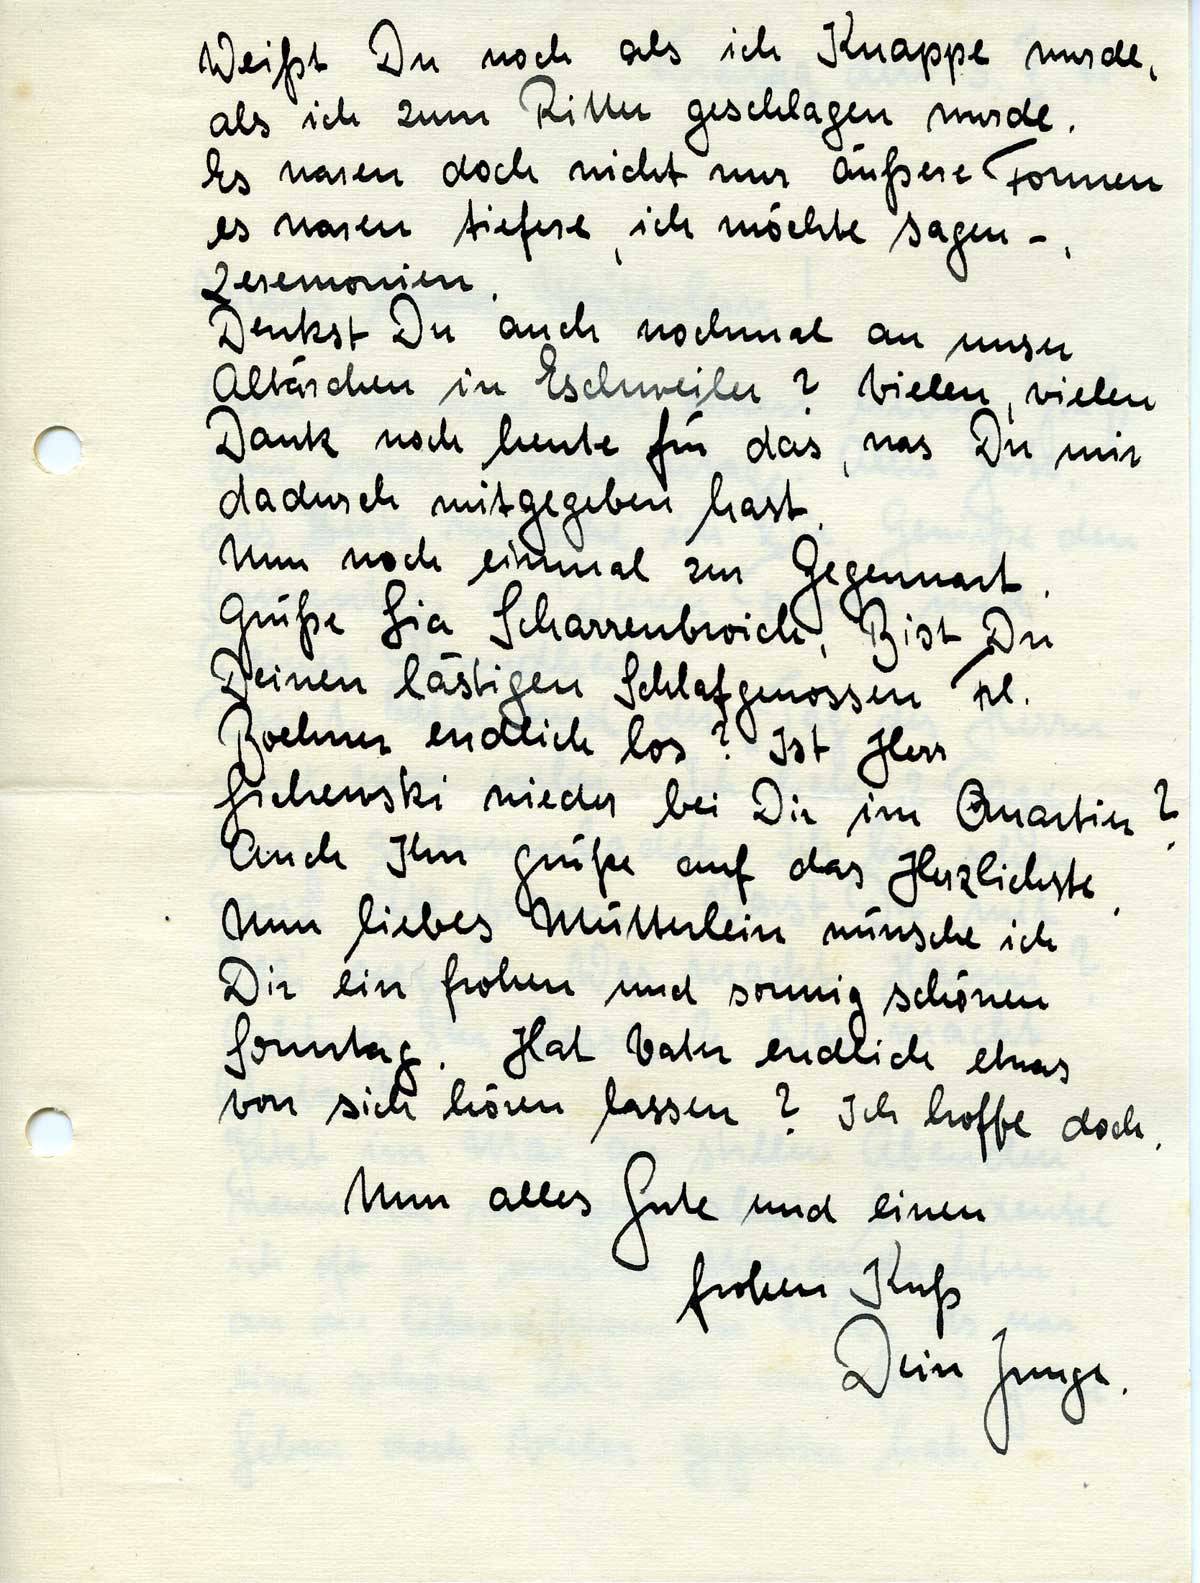 Weißt Du noch als ich Knappe wurde,
als ich zum Ritter geschlagen wurde.
Es waren doch nicht nur äußere Formen
es waren tiefere, ich möchte sagen –,
Zeremonien.
Denkst Du auch nochmal an unser
Altärchen in Eschweiler? Vielen, vielen
Dank noch heute für das, was Du mir
dadurch mitgegeben hast.
Nun noch einmal zur Gegenwart.
Grüße Sia Scharrenbroich, Bist Du
Deinen lästigen Schlafgenossen Frl.
Boehmer endlich los? Ist Herr
wieder bei Dir im Quartier?
Auch Ihn grüße auf das Herzlichste.
Nun liebes Mütterlein wünsche ich
Dir ein frohen und sonnig schönen
Sonntag. Hat Vater endlich etwas
von sich hören lassen? Ich hoffe doch.
Nun alles Gute und einen
frohen Kuß
Dein Junge.